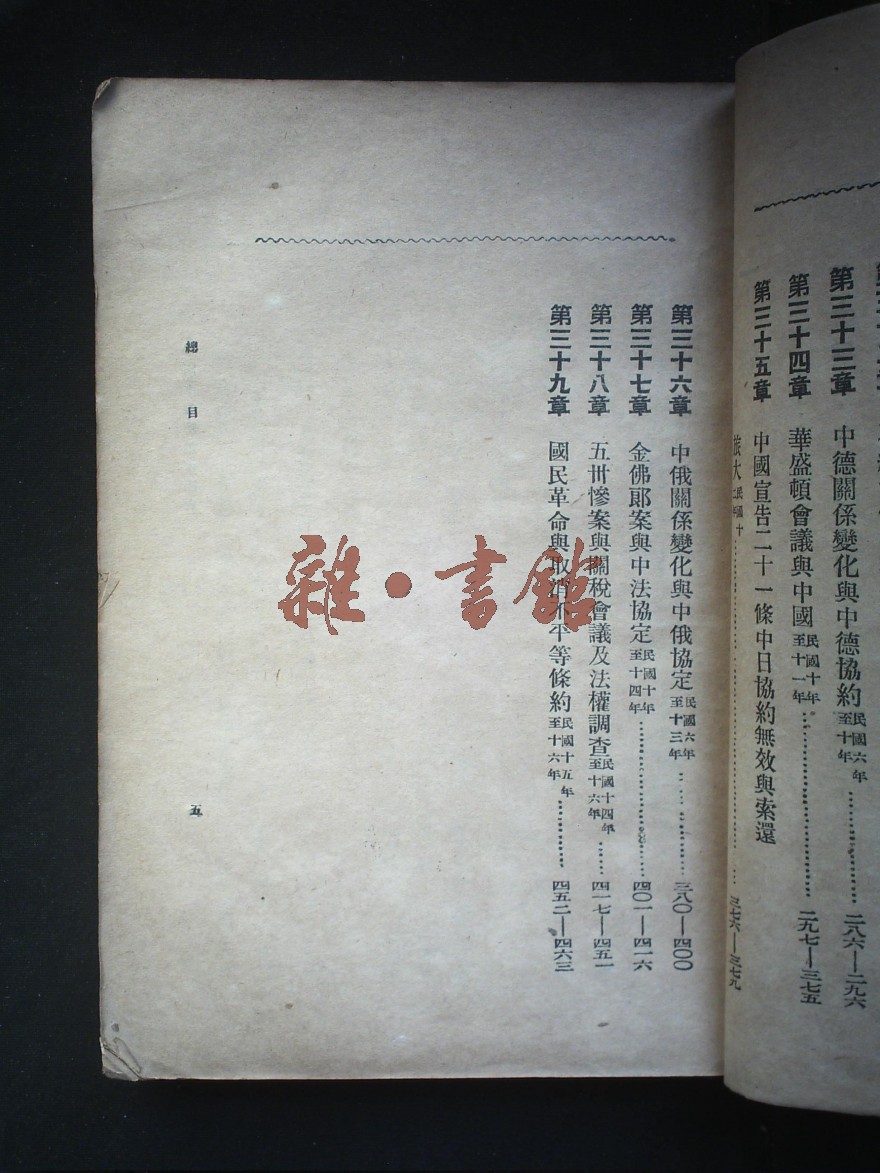 第三十三章 中德關係變化與中德協約 民國六年至十年 二八六—二九六
第三十四章 華盛頓會議與中國 民國十年至十一年 二九七—三七五
第三十五章 中國宣告二十一條中日協約無效與索還
旅大 民國十二年 三七六—三七九
第三十六章 中俄關係變化與中俄協定 民國六年至十三年 三八〇—四〇〇
第三十七章 金佛郎案與中法協定 民國十年至十四年 四〇一—四一六
第三十八章 五卅慘案與關稅會議及法權調查 民國十四年至十六年 四一七—四五一
第三十九章 國民革命與取消不平等條約 民國十五年至十六年 四五二—四六三
總目 五
雜·書館